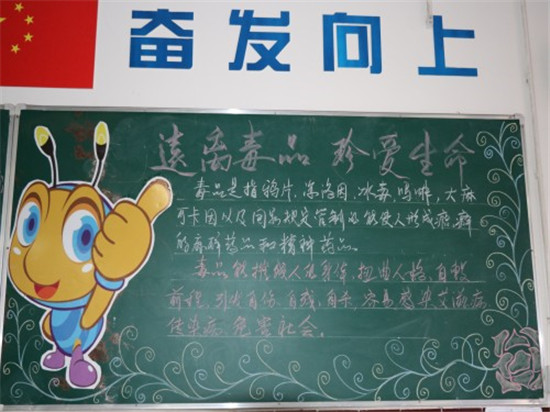 奋发向上
远离毒品 珍爱生命
毒品是指鸦片、海洛因、冰毒、吗啡、大麻
可卡因以及国家规定管制的能使人形成瘾癖
的麻醉药品和精神药品。
毒品能摧残人的身体,扭曲人格,自毁
前程,引发自伤,自残,自杀,容易感染艾滋病
传染病,危害社会。